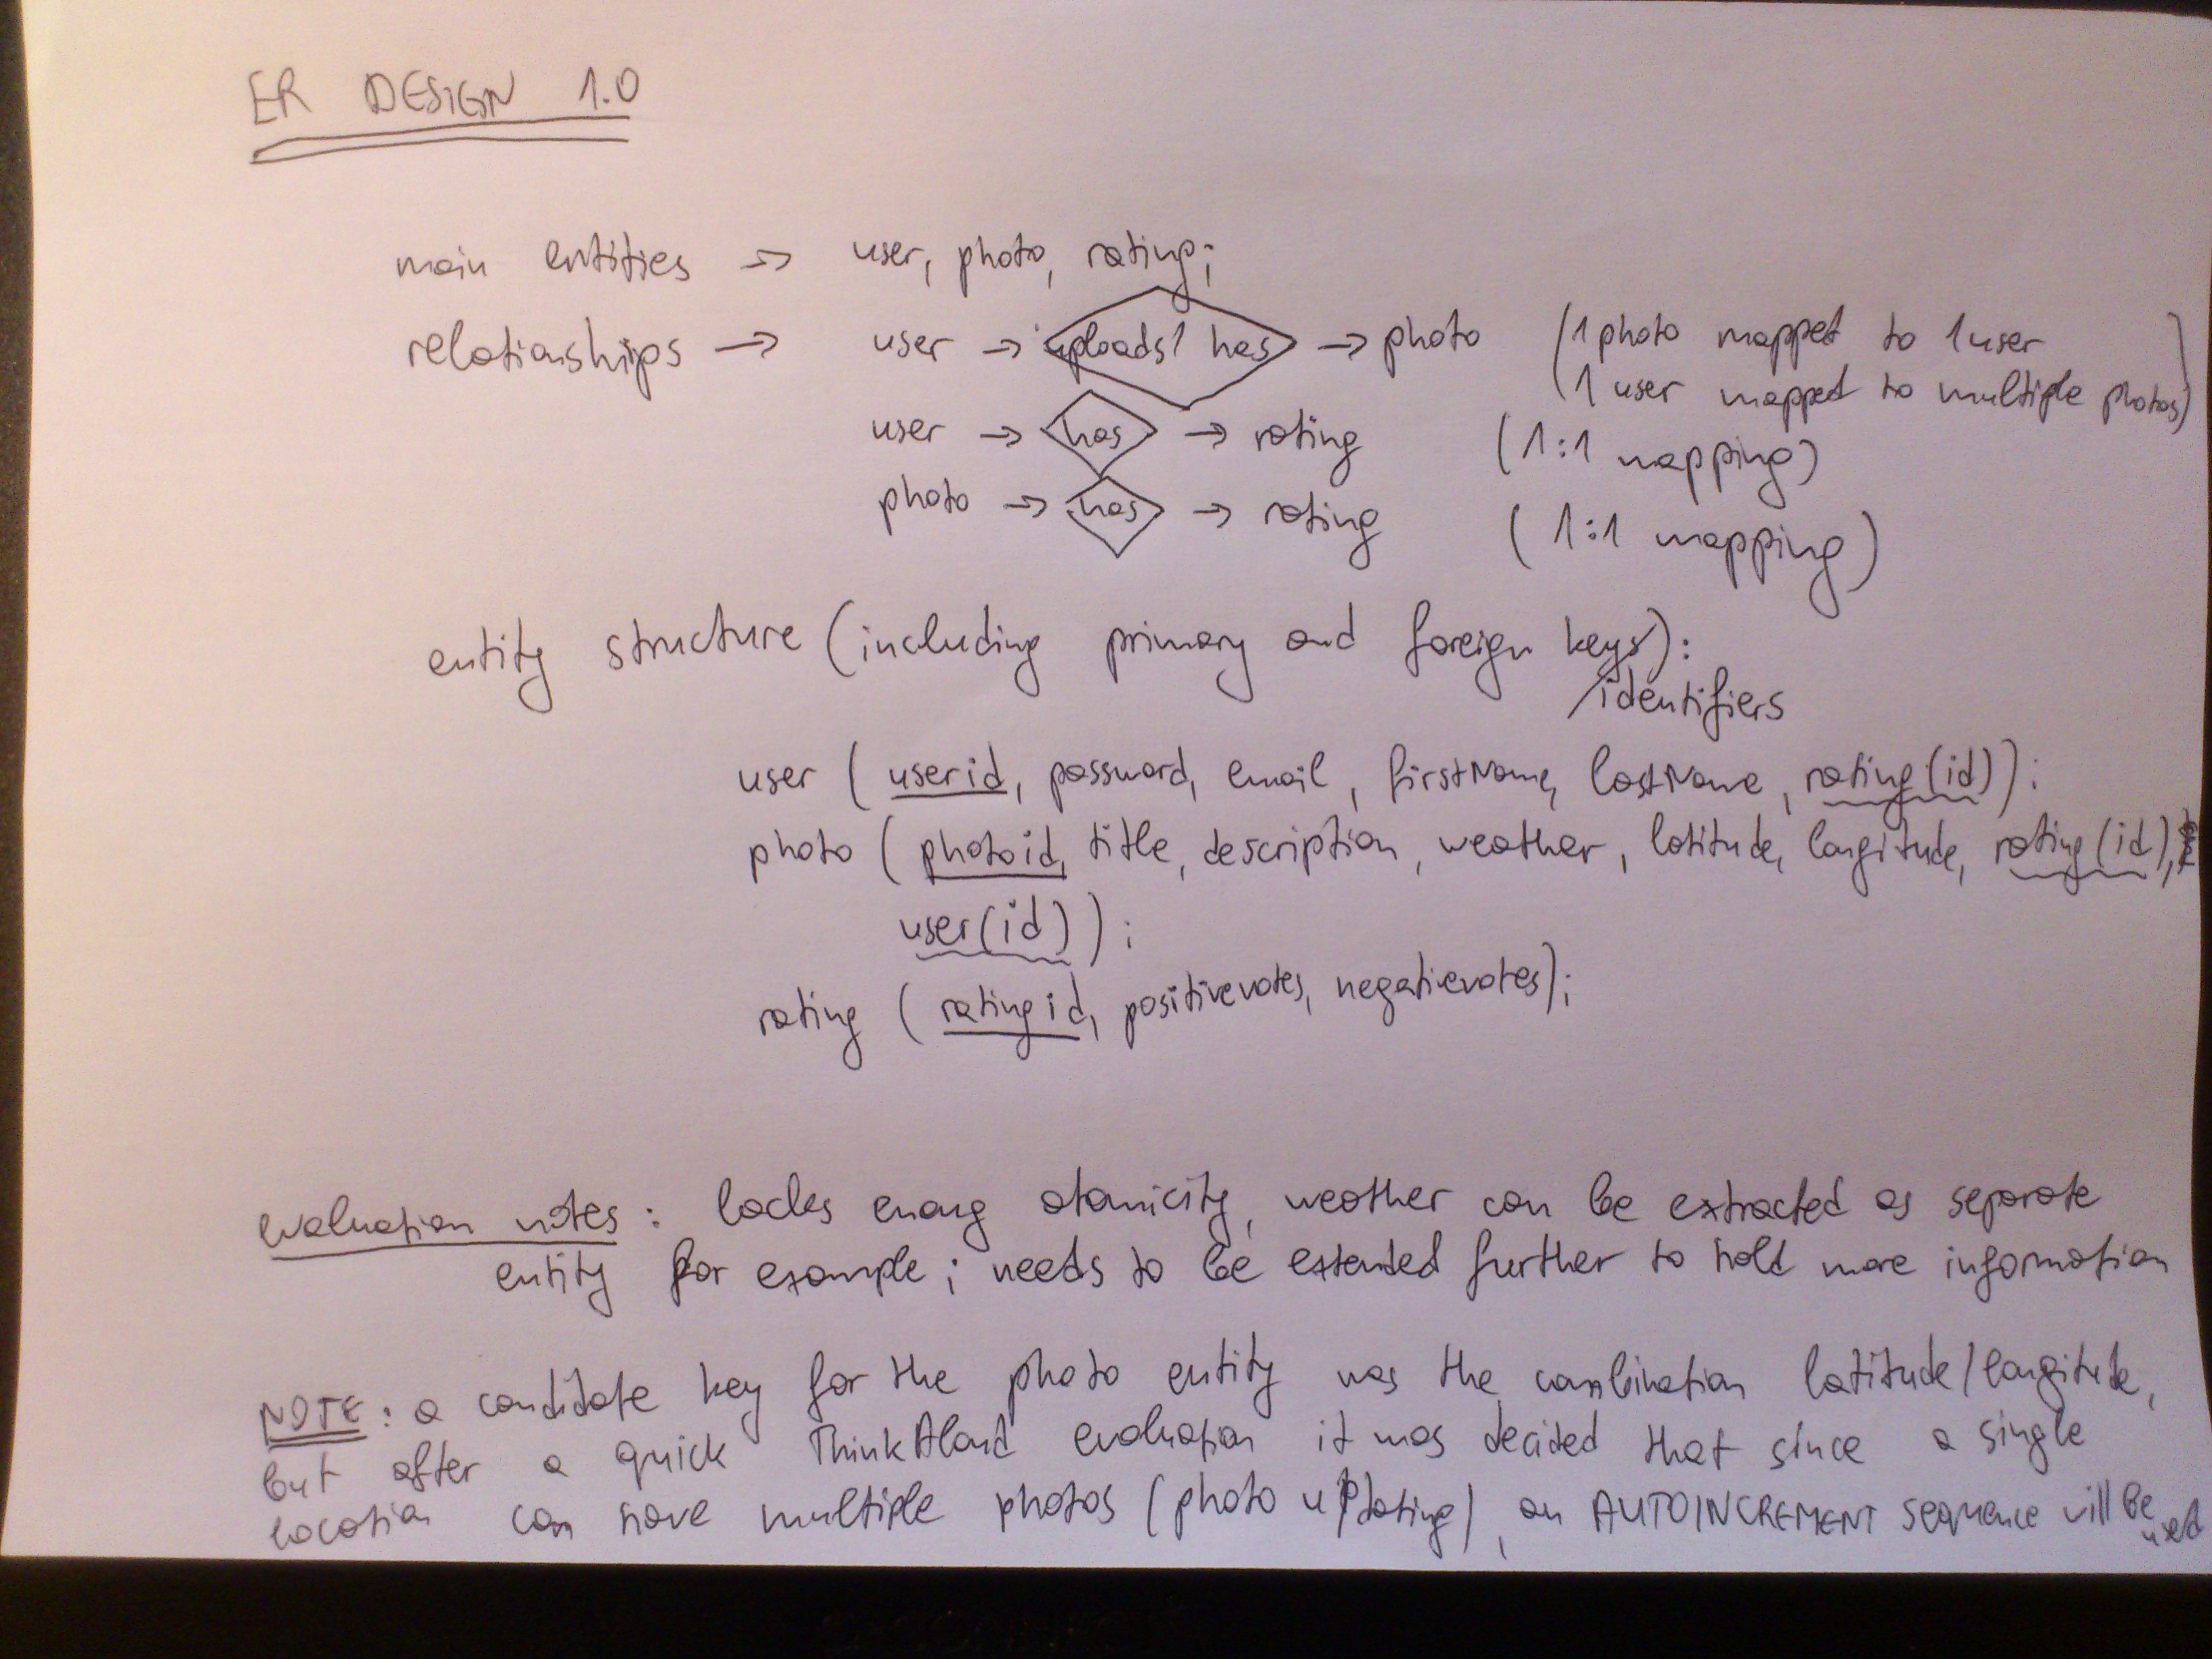 ER DESIGN 1.0
main entities → user, photo, rating;
relationships → user → uploads/has → photo (1 photo mapped to 1 user
(1 user mapped to multiple photos)
user → has → rating (1:1 mapping)
photo → has → rating (1:1 mapping)
entity structure (including primary and foreign keys):
identifiers
user (userid, password, email, firstname, lastname, rating(id));
photo (photoid, title, description, weather, latitude, longitude, rating(id),
user(id));
rating (ratingid, positivevotes, negativevotes);
evaluation notes: lacks enoug atomicity, weather can be extracted as separate
entity for example; needs to be extended further to hold more information
NOTE: a candidate key for the photo entity was the combination latitude/longitude,
but after a quick ThinkAloud evaluation it was decided that since a single
location can have multiple photos (photo updating), an AUTOINCREMENT sequence will be
used